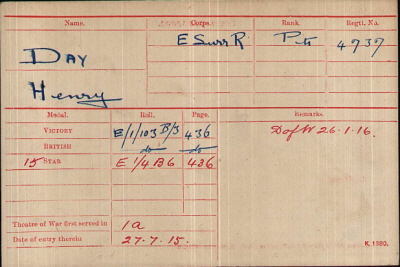 Name. Corps. Rank. Regtl. No.
DAY E Surr R Pte 4737
Henry
Medal. Roll. Page. Remarks.
VICTORY E/1/103 B/3 436 D of W 26.1.16.
BRITISH do do
15 STAR E 1/4 B6 436
Theatre of War first served in 1a
Date of entry therein 27.7.15.
K. 1380.